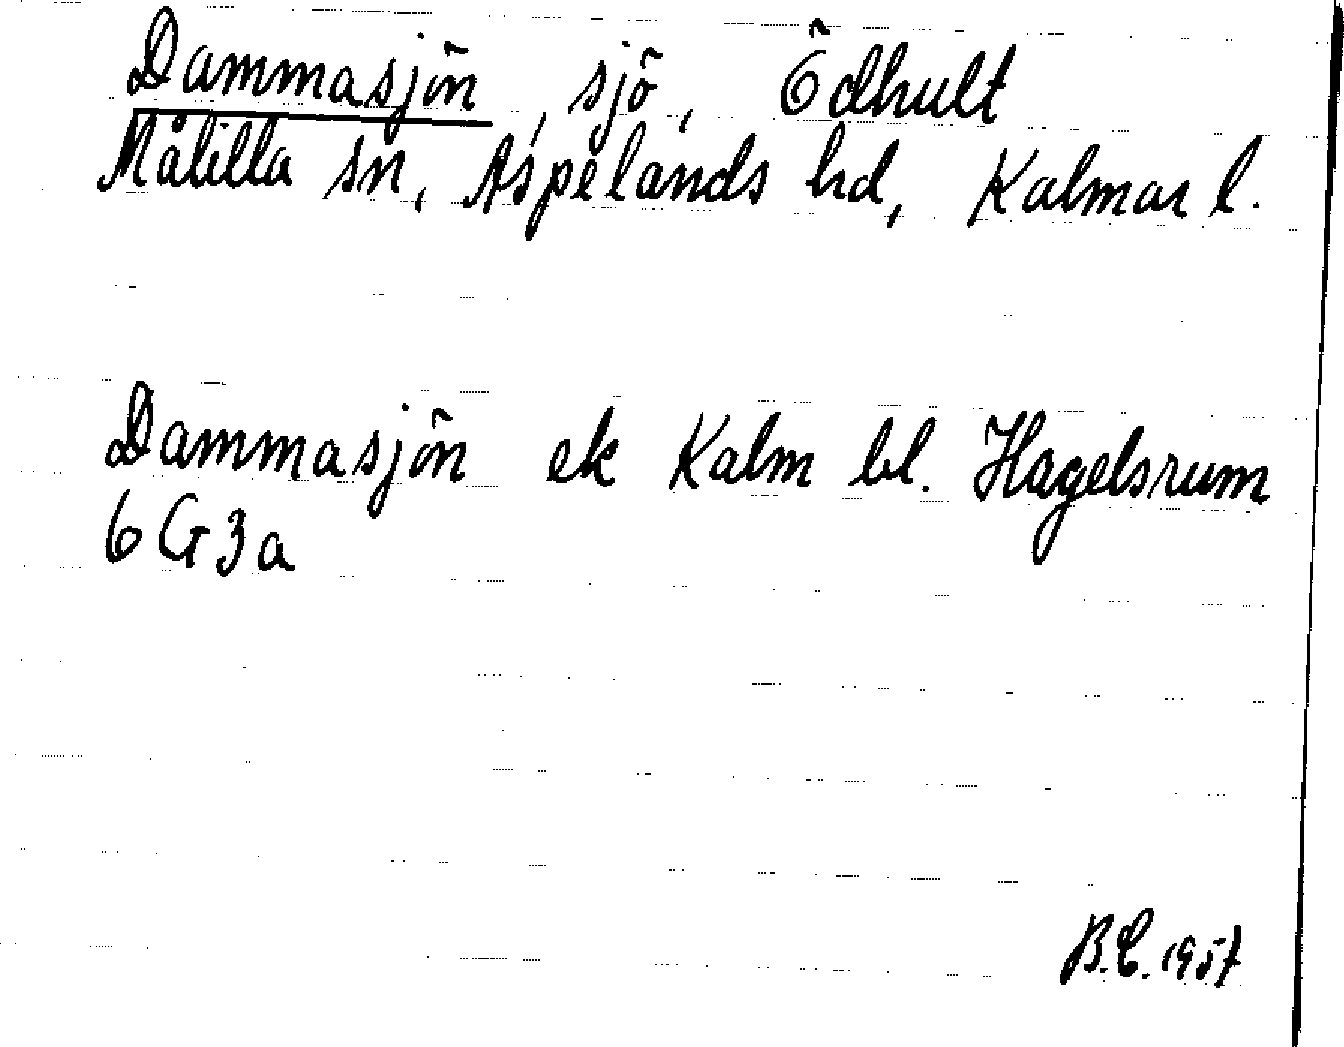 Dammasjön, sjö, Ödhult
Målilla sn, Aspelands hd, Kalmar l.
Dammasjön ek Kalm bl. Hagelsrum
6G3a
B.C. 1957